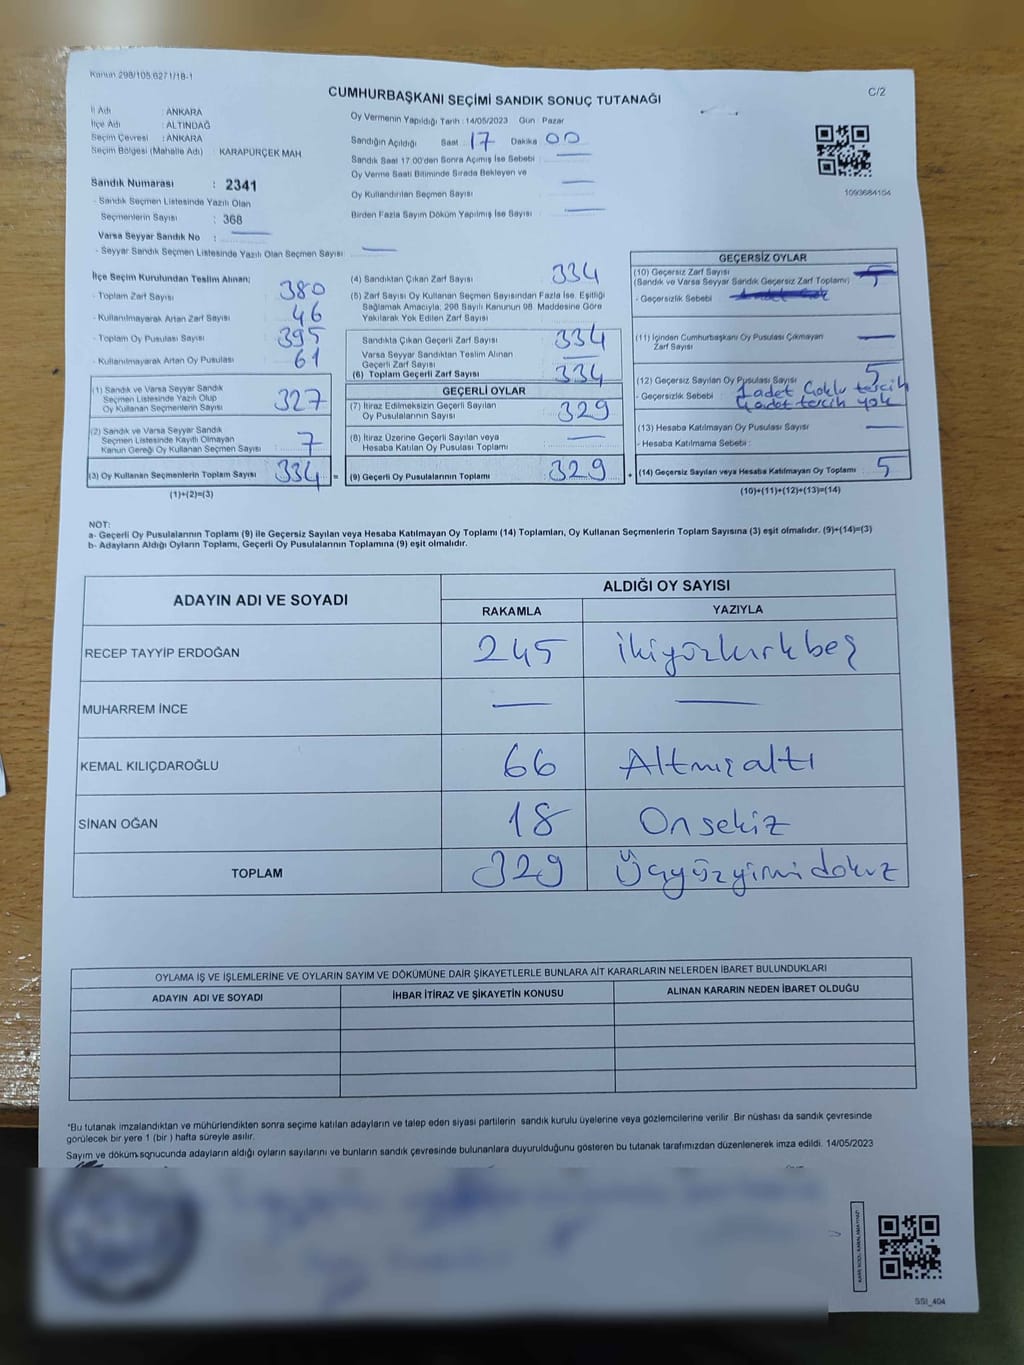 Kanun 298/105 6271/18-1
C/2
CUMHURBAŞKANI SEÇİMİ SANDIK SONUÇ TUTANAĞI
İl Adı : ANKARA
İlçe Adı : ALTINDAĞ
Seçim Çevresi : ANKARA
Seçim Bölgesi (Mahalle Adı) : KARAPÜRÇEK MAH
Sandık Numarası : 2341
- Sandık Seçmen Listesinde Yazılı Olan
Seçmenlerin Sayısı : 368
Varsa Seyyar Sandık No :
- Seyyar Sandık Seçmen Listesinde Yazılı Olan Seçmen Sayısı :
Oy Vermenin Yapıldığı Tarih : 14/05/2023 Gün : Pazar
Sandığın Açıldığı Saat : 17 Dakika 00
Sandık Saat 17.00'den Sonra Açılmış İse Sebebi
Oy Verme Saati Bitiminde Sırada Bekleyen ve
Oy Kullandırılan Seçmen Sayısı
Birden Fazla Sayım Döküm Yapılmış İse Sayısı
1093684104
İlçe Seçim Kurulundan Teslim Alınan;
- Toplam Zarf Sayısı 380
- Kullanılmayarak Artan Zarf Sayısı 46
- Toplam Oy Pusulası Sayısı 395
- Kullanılmayarak Artan Oy Pusulası 61
(1) Sandık ve Varsa Seyyar Sandık
Seçmen Listesinde Yazılı Olup
Oy Kullanan Seçmenlerin Sayısı 327
(2) Sandık ve Varsa Seyyar Sandık
Seçmen Listesinde Kayıtlı Olmayan
Kanun Gereği Oy Kullanan Seçmen Sayısı 7
(3) Oy Kullanan Seçmenlerin Toplam Sayısı 334 =
(1)+(2)=(3)
(4) Sandıktan Çıkan Zarf Sayısı 334
(5) Zarf Sayısı Oy Kullanan Seçmen Sayısından Fazla İse, Eşitliği
Sağlamak Amacıyla; 298 Sayılı Kanunun 98. Maddesine Göre
Yakılarak Yok Edilen Zarf Sayısı
Sandıkta Çıkan Geçerli Zarf Sayısı 334
Varsa Seyyar Sandıktan Teslim Alınan
Geçerli Zarf Sayısı
(6) Toplam Geçerli Zarf Sayısı 334
GEÇERLİ OYLAR
(7) İtiraz Edilmeksizin Geçerli Sayılan
Oy Pusulalarının Sayısı 329
(8) İtiraz Üzerine Geçerli Sayılan veya
Hesaba Katılan Oy Pusulası Toplamı
(9) Geçerli Oy Pusulalarının Toplamı 329 +
GEÇERSİZ OYLAR
(10) Geçersiz Zarf Sayısı
(Sandık ve Varsa Seyyar Sandık Geçersiz Zarf Toplamı)
- Geçersizlik Sebebi
(11) İçinden Cumhurbaşkanı Oy Pusulası Çıkmayan
Zarf Sayısı
(12) Geçersiz Sayılan Oy Pusulası Sayısı 5
- Geçersizlik Sebebi : 1 adet Çoklu tercih
4 adet tercih yok
(13) Hesaba Katılmayan Oy Pusulası Sayısı
- Hesaba Katılmama Sebebi :
(14) Geçersiz Sayılan veya Hesaba Katılmayan Oy Toplamı 5
(10)+(11)+(12)+(13)=(14)
NOT:
a- Geçerli Oy Pusulalarının Toplamı (9) ile Geçersiz Sayılan veya Hesaba Katılmayan Oy Toplamı (14) Toplamları, Oy Kullanan Seçmenlerin Toplam Sayısına (3) eşit olmalıdır. (9)+(14)=(3)
b- Adayların Aldığı Oyların Toplamı, Geçerli Oy Pusulalarının Toplamına (9) eşit olmalıdır.
ADAYIN ADI VE SOYADI
ALDIĞI OY SAYISI
RAKAMLA YAZIYLA
RECEP TAYYİP ERDOĞAN 245 ikiyüzkırkbeş
MUHARREM İNCE
KEMAL KILIÇDAROĞLU 66 Altmışaltı
SİNAN OĞAN 18 Onsekiz
TOPLAM 329 Üçyüzyimidokuz
OYLAMA İŞ VE İŞLEMLERİNE VE OYLARIN SAYIM VE DÖKÜMÜNE DAİR ŞİKAYETLERLE BUNLARA AİT KARARLARIN NELERDEN İBARET BULUNDUKLARI
ADAYIN ADI VE SOYADI İHBAR İTİRAZ VE ŞİKAYETİN KONUSU ALINAN KARARIN NEDEN İBARET OLDUĞU
*Bu tutanak imzalandıktan ve mühürlendikten sonra seçime katılan adayların ve talep eden siyasi partilerin sandık kurulu üyelerine veya gözlemcilerine verilir. Bir nüshası da sandık çevresinde
görülecek bir yere 1 (bir ) hafta süreyle asılır.
Sayım ve döküm sonucunda adayların aldığı oyların sayılarını ve bunların sandık çevresinde bulunanlara duyurulduğunu gösteren bu tutanak tarafımızdan düzenlenerek imza edildi. 14/05/2023
SSI_404